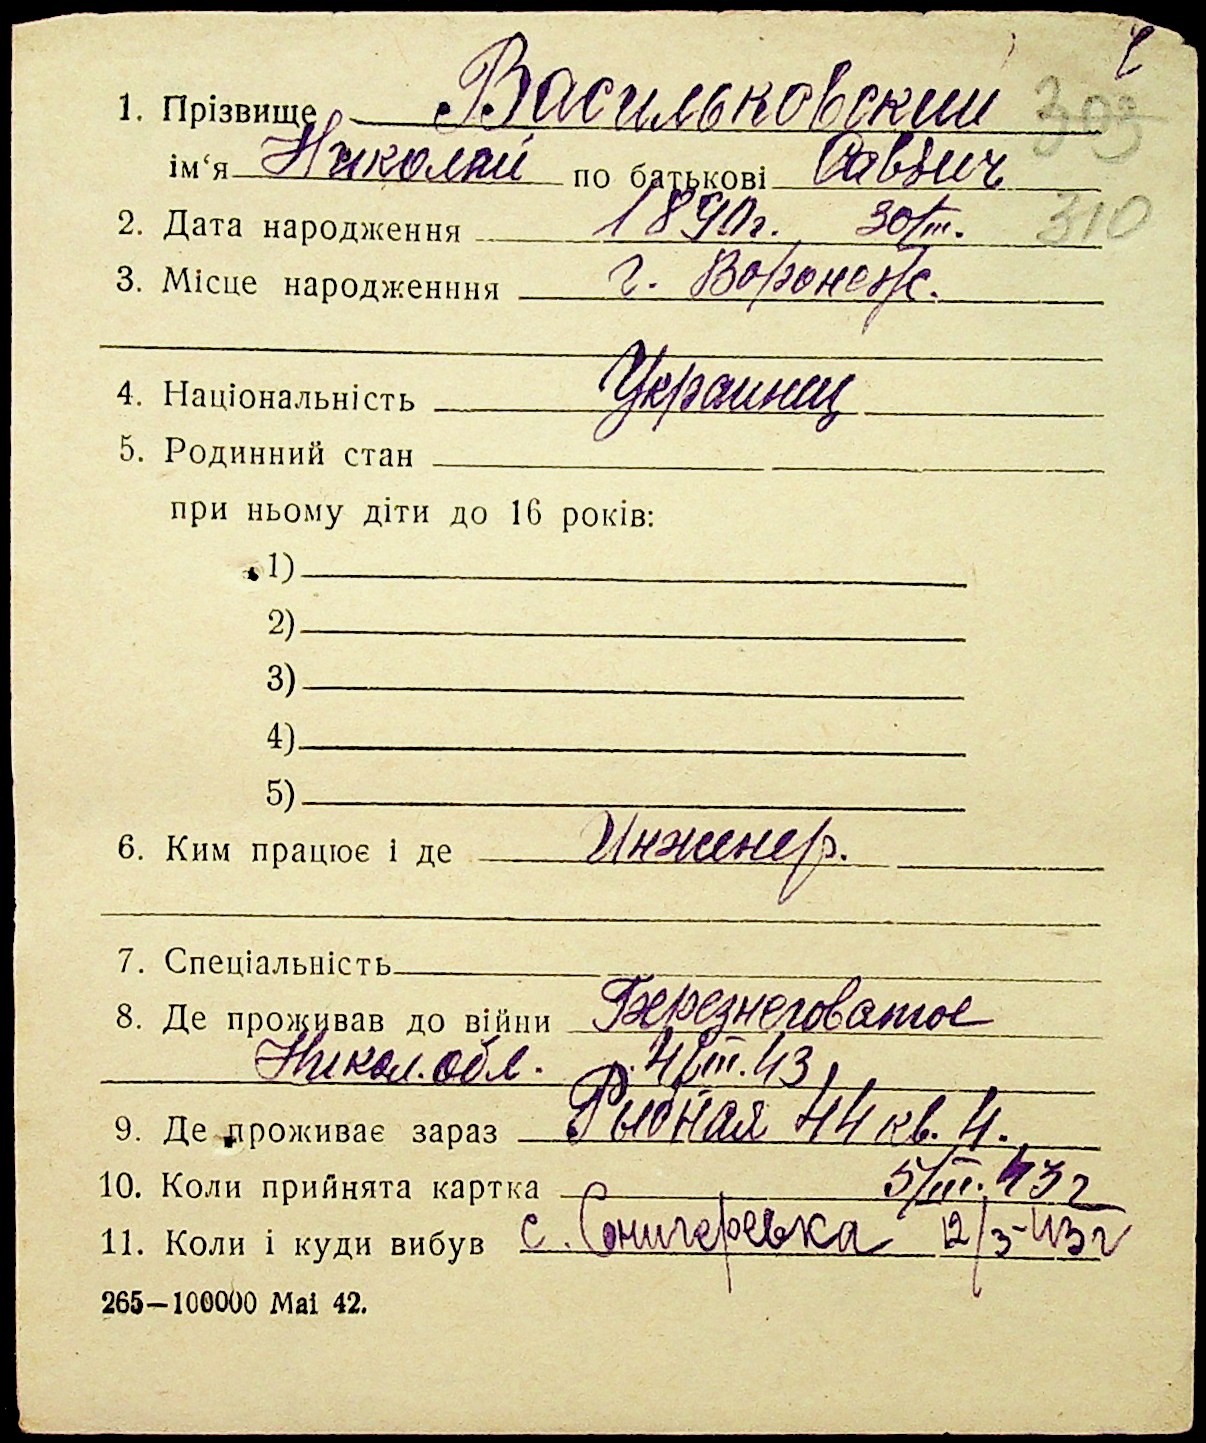 1. Прізвище Васильковский 303
ім‘я Николай по батькові Саввич
2. Дата народження 1890г. 30/III. 310
3. Місце народженння г. Воронеж.
4. Національність Украинец
5. Родинний стан
при ньому діти до 16 років:
1)
2)
3)
4)
5)
6. Ким працює і де Инженер.
7. Спеціальність
8. Де проживав до війни Березнеговатое
Никол. обл. 4/III.43
9. Де проживає зараз Рыбная 44 кв. 4.
10. Коли прийнята картка 5/III.43г
11. Коли і куди вибув с. Снигеревка 12/3-43г
265—100000 Mai 42.